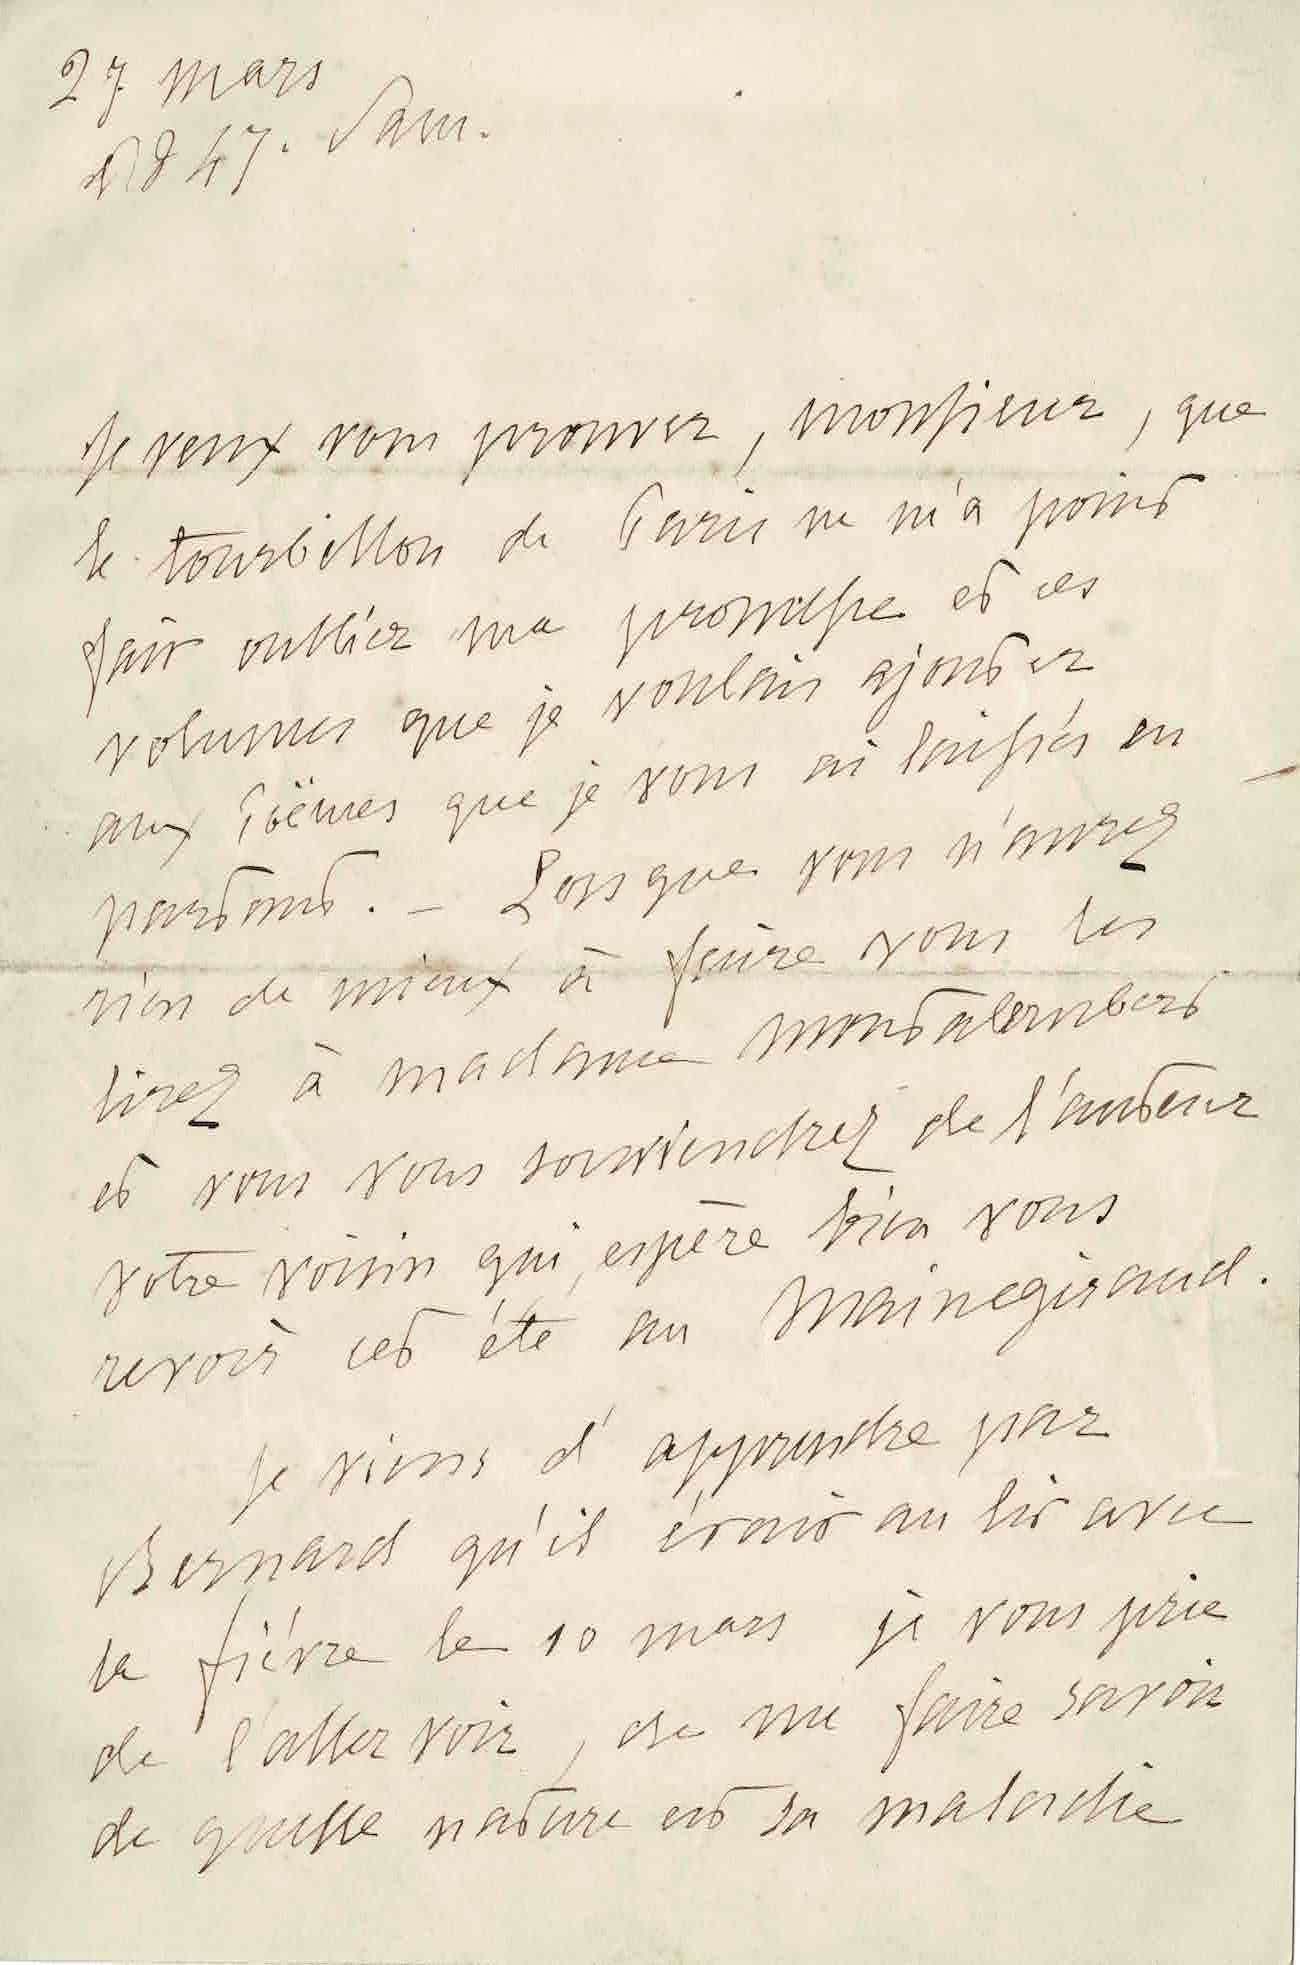 27 mars
1847. Sam.
Je veux vous prouver, monsieur, que
le tourbillon de Paris ne m'a point
fait oublier ma promesse et ces
volumes que je voulais ajouter
aux Poëmes que je vous ai laissés en
partant. – Lorsque vous n'aurez
rien de mieux à faire vous les
lirez à madame Montalembert
et vous vous souviendrez de l'auteur
votre voisin qui espère bien vous
revoir cet été au Mainegiraud.
Je viens d'apprendre par
Bernard qu'il était au lit avec
la fiévre le 10 mars je vous prie
de l'aller voir, de me faire savoir
de quelle nature est sa maladie